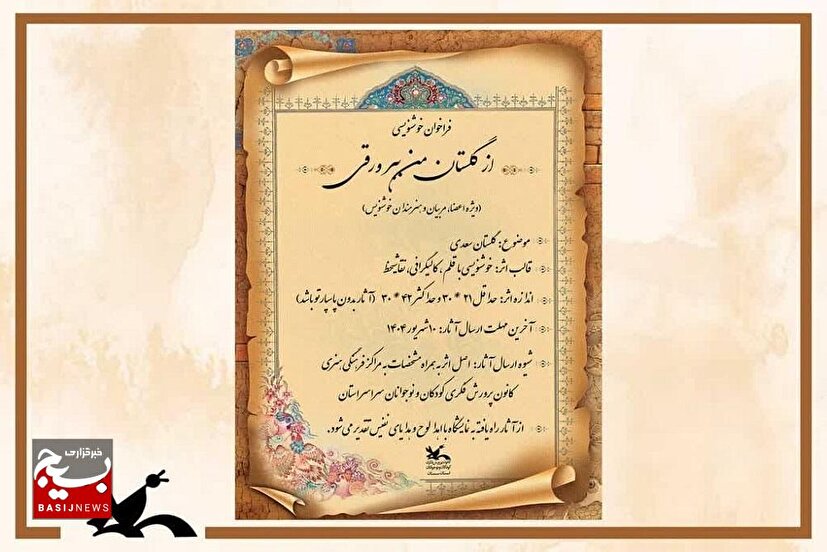 فراخوان خوشنویسی
از گلستان من ببر ورقی
(ویژه اعضا، مربیان و هنرمندان خوشنویس)
موضوع: گلستان سعدی
قالب اثر: خوشنویسی با قلم، کالیگرافی، نقاشیخط
اندازه اثر: حداقل ۲۱ * ۳۰ و حداکثر ۴۲ * ۳۰ (آثار بدون پاسپارتو باشد)
آخرین مهلت ارسال آثار: ۱۰ شهریور ۱۴۰۴
شیوه ارسال آثار: اصل اثر به همراه مشخصات به مراکز فرهنگی هنری
کانون پرورش فکری کودکان و نوجوانان سراسر استان
از آثار راه یافته به نمایشگاه با اهدا لوح و هدایای نفیس تقدیر می شود.
خبرگزاری
بسیج
BASIJNEWS